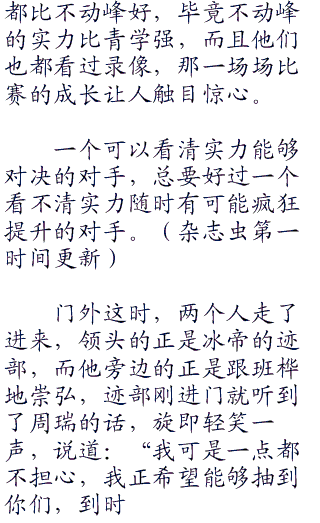 都比不动峰好，毕竟不动峰
的实力比青学强，而且他们
也都看过录像，那一场场比
赛的成长让人触目惊心。
一个可以看清实力能够
对决的对手，总要好过一个
看不清实力随时有可能疯狂
提升的对手。（杂志虫第一
时间更新）
门外这时，两个人走了
进来，领头的正是冰帝的迹
部，而他旁边的正是跟班桦
地崇弘，迹部刚进门就听到
了周瑞的话，旋即轻笑一
声，说道：“我可是一点都
不担心，我正希望能够抽到
你们，到时